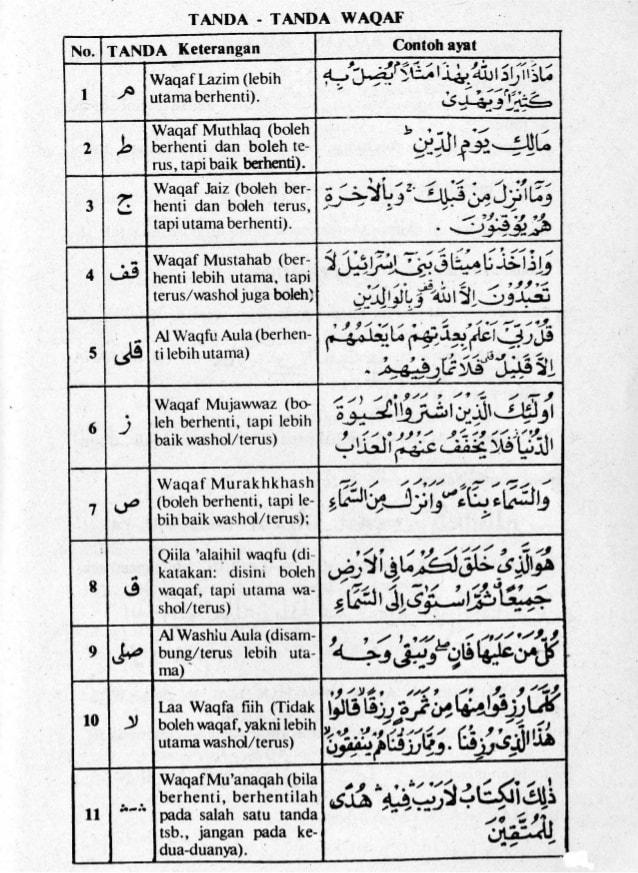 TANDA - TANDA WAQAF
No. TANDA Keterangan Contoh ayat
1 م
Waqaf Lazim (lebih
utama berhenti).
مَاذَا اَرَادَ اللهُ بِهٰذَا مَثَلًا يُضِلُّ بِهِ
كَثِيْرًا وَيَهْدِىْ
2 ط
Waqaf Muthlaq (boleh
berhenti dan boleh te-
rus, tapi baik berhenti).
مَالِكِ يَوْمِ الدِّيْنِ ط
3 ج
Waqaf Jaiz (boleh ber-
henti dan boleh terus,
tapi utama berhenti).
وَمَا اُنْزِلَ مِنْ قَبْلِكَ ج وَبِالْاٰخِرَةِ
هُمْ يُوْقِنُوْنَ .
4 قف
Waqaf Mustahab (ber-
henti lebih utama, tapi
terus/washol juga boleh;
وَاِذْ اَخَذْنَا مِيْثَاقَ بَنِىْ اِسْرَائِيْلَ لَا
تَعْبُدُوْنَ اِلَّا اللهَ قف وَبِالْوَالِدَيْنِ
5 قلى
Al Waqfu Aula (berhen-
ti lebih utama)
قُلْ رَبِّىْ اَعْلَمُ بِعِدَّتِهِمْ مَا يَعْلَمُهُمْ
اِلَّا قَلِيْلٌ قلى فَلَا تُمَارِ فِيْهِمْ .
6 ز
Waqaf Mujawwaz (bo-
leh berhenti, tapi lebih
baik washol/terus)
اُولٰئِكَ الَّذِيْنَ اشْتَرَوُا الْحَيٰوةَ
الدُّنْيَا ز فَلَا يُخَفَّفُ عَنْهُمُ الْعَذَابُ
7 ص
Waqaf Murakhkhash
(boleh berhenti, tapi le-
bih baik washol/terus);
وَالسَّمَاءَ بِنَاءً ص وَاَنْزَلَ مِنَ السَّمَاءِ
8 ق
Qiila 'alaihil waqfu (di-
katakan: disini boleh
waqaf, tapi utama wa-
shol/terus)
هُوَ الَّذِىْ خَلَقَ لَكُمْ مَا فِى الْاَرْضِ
جَمِيْعًا ق ثُمَّ اسْتَوٰى اِلَى السَّمَاءِ
9 صلى
Al Washlu Aula (disam-
bung/terus lebih uta-
ma)
كُلُّ مَنْ عَلَيْهَا فَانٍ صلى وَيَبْقٰى وَجْهُ
10 لا
Laa Waqfa fiih (Tidak
boleh waqaf, yakni lebih
utama washol/terus)
كُلَّمَا رُزِقُوْا مِنْهَا مِنْ ثَمَرَةٍ رِزْقًا لا قَالُوْا
هٰذَا الَّذِىْ رُزِقْنَا . وَمِمَّا رَزَقْنَاهُمْ يُنْفِقُوْنَ لا
11 ث-ث
Waqaf Mu'anaqah (bila
berhenti, berhentilah
pada salah satu tanda
tsb., jangan pada ke-
dua-duanya).
ذٰلِكَ الْكِتَابُ لَا رَيْبَ ث فِيْهِ ث هُدًى
لِلْمُتَّقِيْنَ